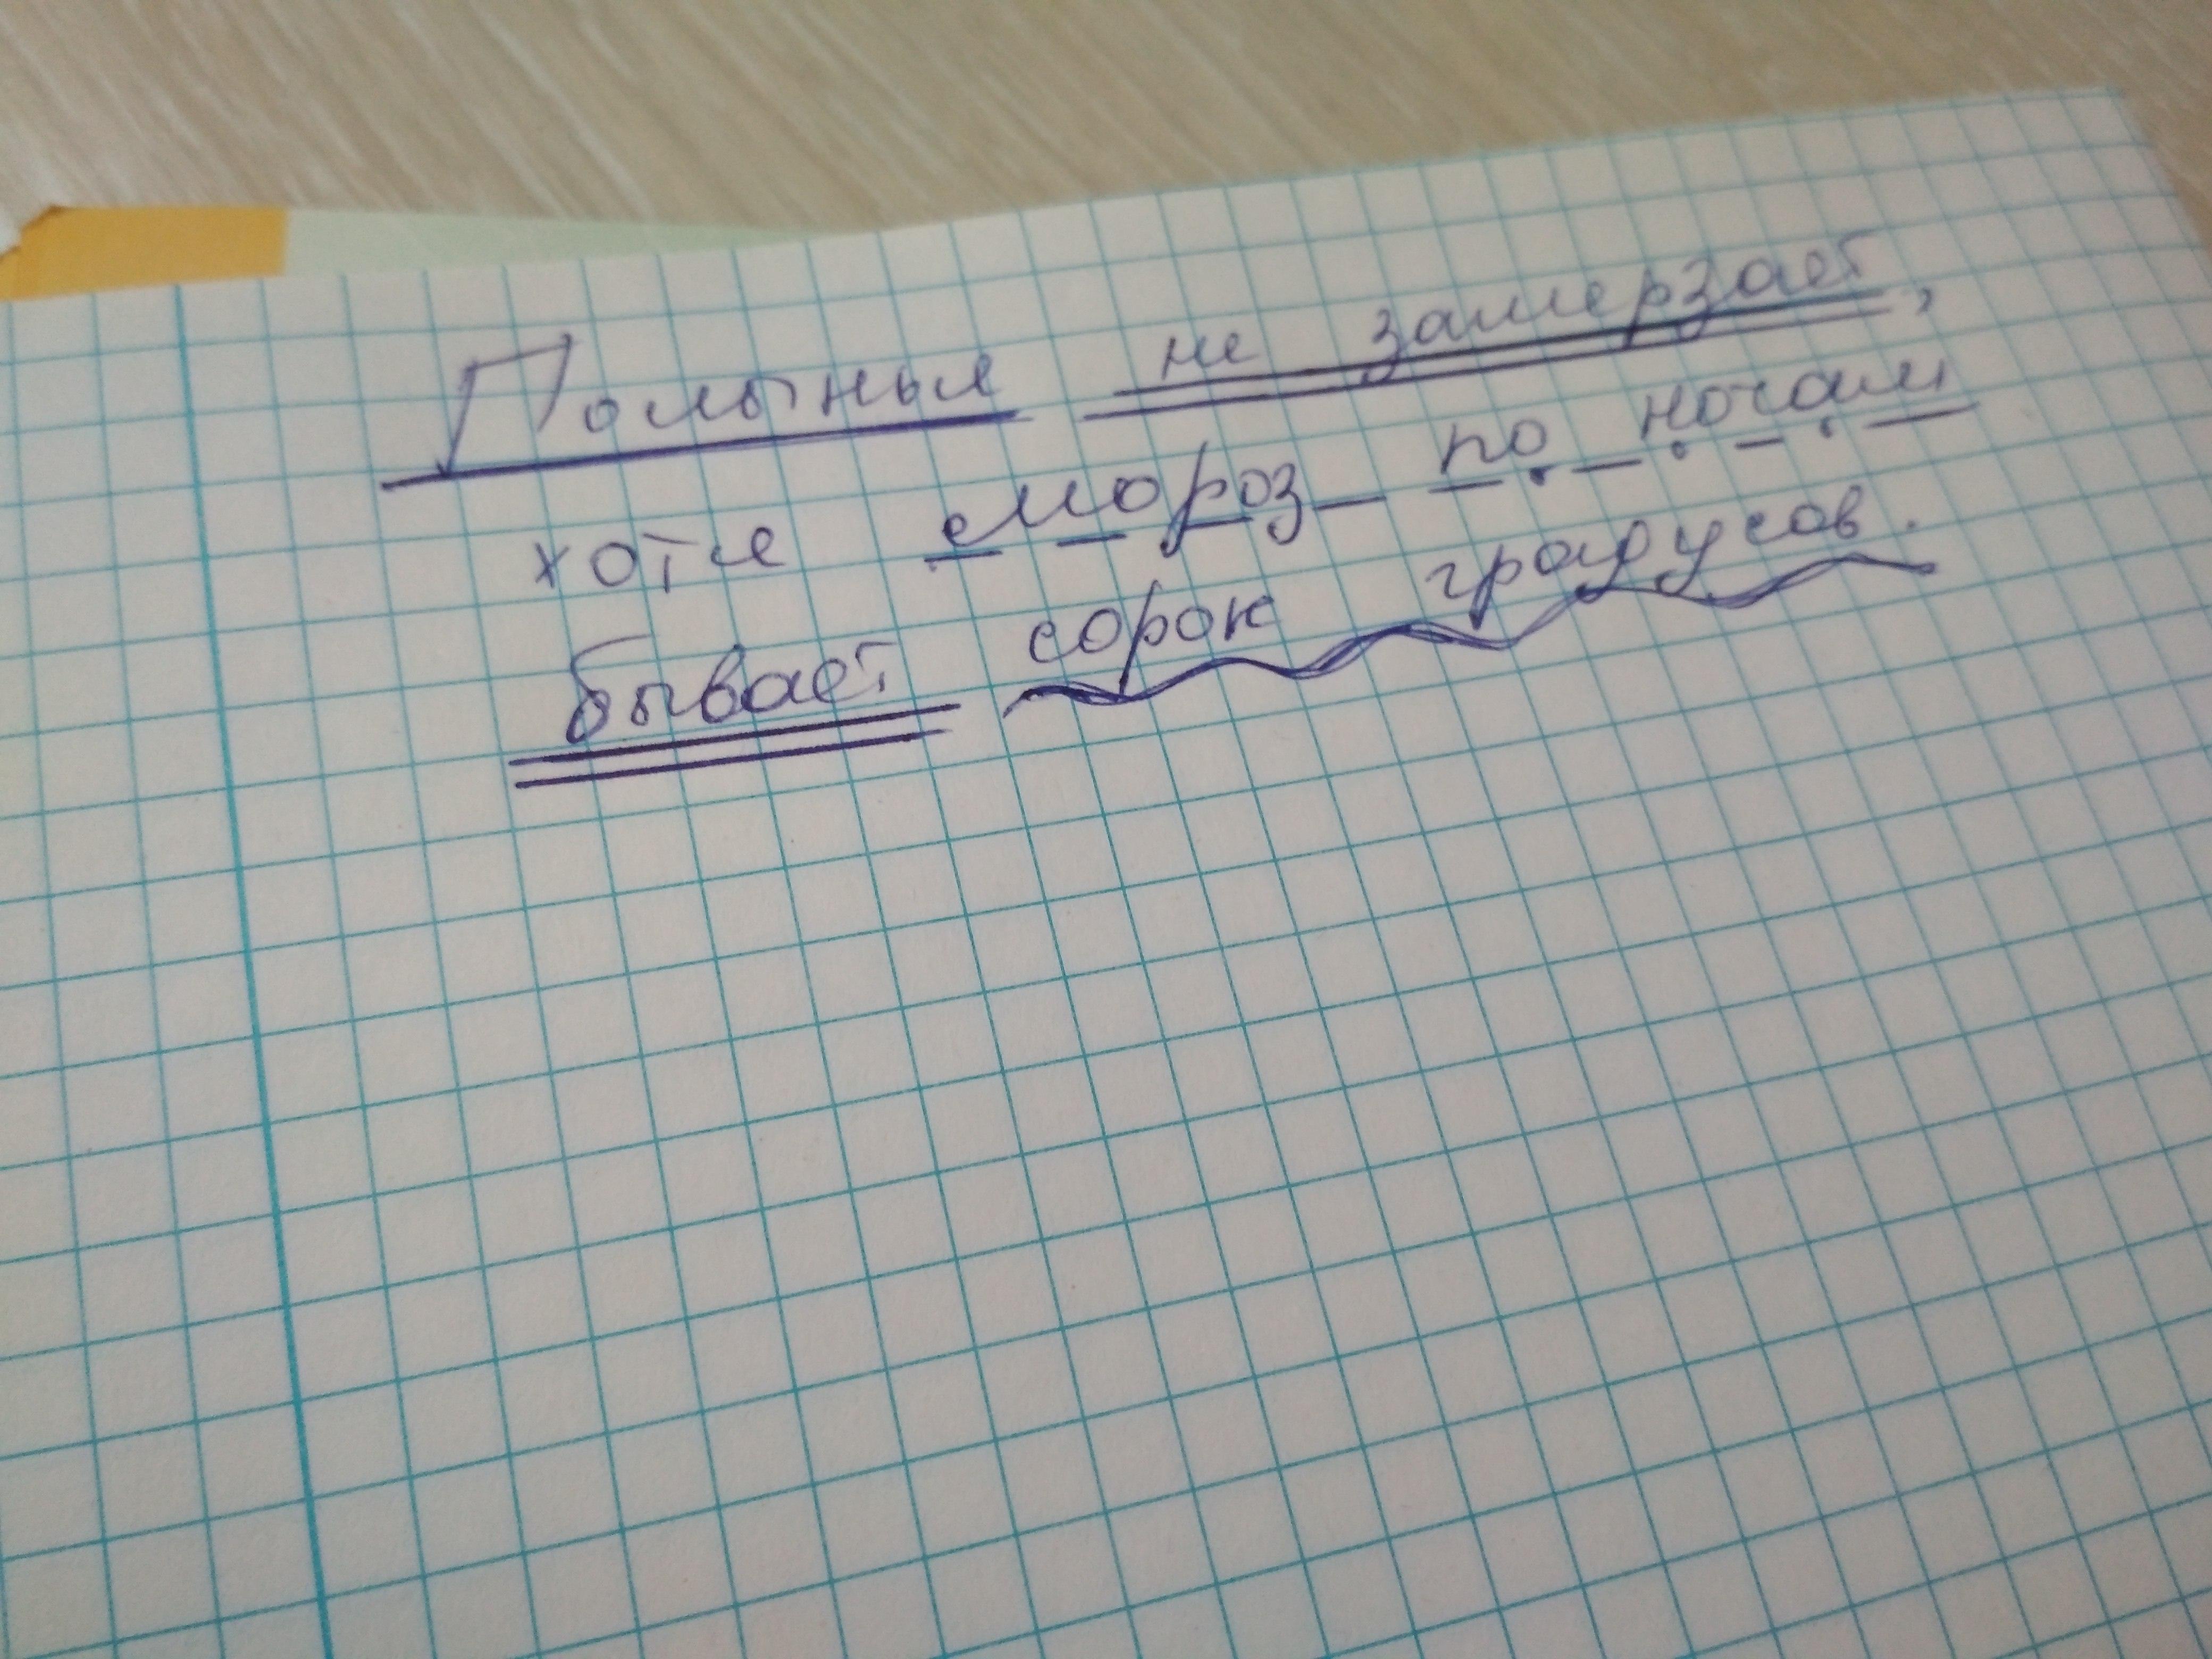 Полынья не замерзает,
хотя мороз по ночам
бывает сорок градусов.